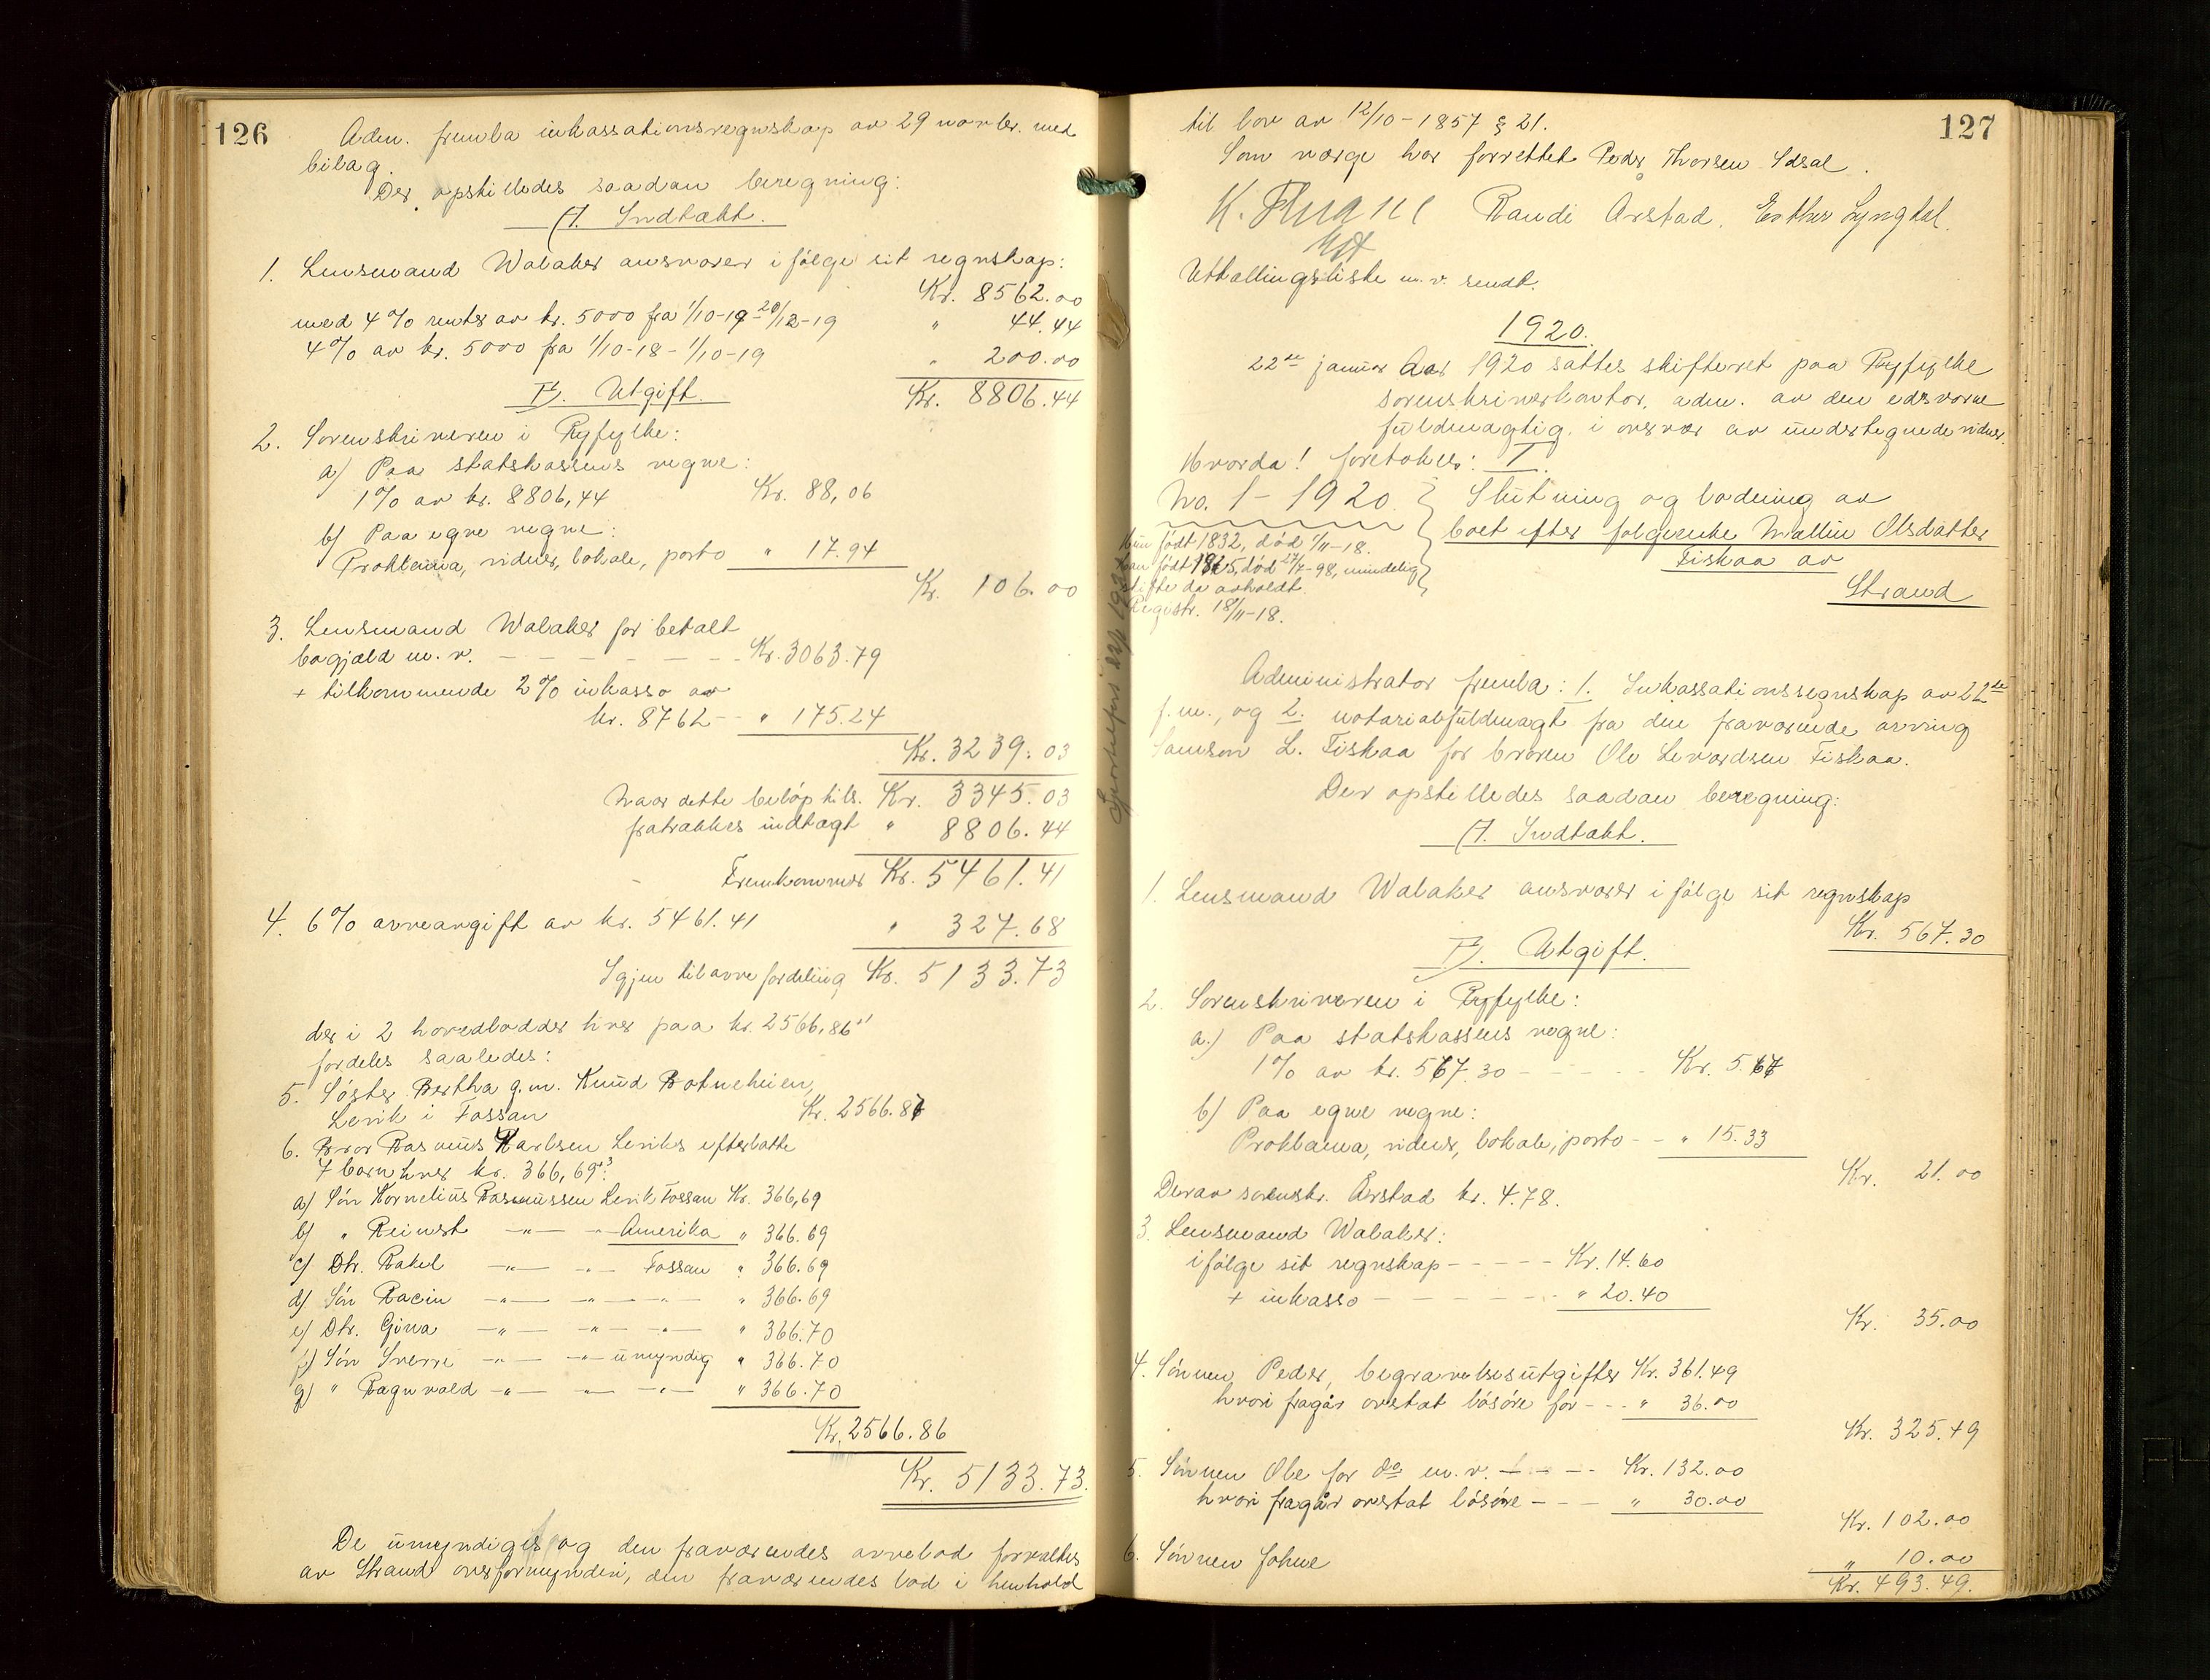 126
Adm. fremla inkassationsregnskap av 29 novbr. med
bilag.
Der opstilledes saadan beregning:
A. Indtækt.
1. Lensmand Walaker ansvarer ifølge sit regnskap:
Kr. 8562.00
med 4% renter av kr. 5000 fra 1/10-19 - 20/12-19 " 44.44
4% av kr. 5000 fra 1/10-18 - 1/10-19 " 200.00
B. Utgift. Kr. 8806.44
2. Sorenskriveren i Ryfylke:
a) Paa statskassens vegne:
1% av kr. 8806,44 Kr. 88,06
b) Paa egne vegne:
Proklama, vidner, lokale, porto " 17.94
Kr. 106.00
3. Lensmand Walaker for betalt
bogjæld m. v. - - - - - - Kr. 3063.79
+ tilkommende 2% inkasso av
kr. 8762 - - " 175.24
Kr. 3239.03
Naar dette beløp tils. Kr. 3345.03
fratrækkes indtægt " 8806.44
Fremkommer Kr. 5461.41
4. 6% arveavgift av kr. 5461.41 " 327.68
Igjen til arvefordeling Kr. 5133.73
der i 2 hovedlodder hver paa kr. 2566,86
fordeles saaledes:
5. Søster Bertha g. m. Knud Botneheien,
Lerik i Fossan Kr. 2566.87
6. Bror Rasmus Karlsen Leriks efterlatte
7 barn hver kr. 366,69
a) Søn Kornelius Rasmussen Lerik Fossan Kr. 366,69
b) " Reinert -"- -"- Amerika " 366.69
c) Dtr. Rakel -"- -"- Fossan " 366.69
d) Søn Racin -"- -"- -"- " 366.69
e) Dtr. Gina -"- -"- -"- " 366.70
f) Søn Sverre -"- -"- umyndig " 366.70
g) " Ragnvald -"- -"- -"- " 366.70
Kr. 2566.86
Kr. 5133.73.
De umyndiges og den fraværendes arvelod forvaltes
av Strand overformynderi, den fraværendes lod i henhold
127
til lov av 12/10-1857 § 21.
Som værge har forrettet Peder Thorsen Idsal.
Randi Arstad. Esther Lyngdal.
Utkallingsliste m. v. sendt.
1920.
22de januar Aar 1920 sattes skifteret paa Ryfylke
sorenskriverkontor, adm. av den edsvorne
fuldmægtig, i overvær av undertegnede vidner.
Hvorda! foretokes: I.
No. 1 - 1920. Slutning og lodning av
boet efter følgeenke Mallin Olsdatter
Tiskaa av
Strand
Hun født 1832, død 1/11-18.
Han født 1825, død 27/7-98, mindelig
skifte da avholdt.
Registr. 18/11-18.
Administrator fremla: 1. Inkassationsregnskap av 22de
f. m., og 2. notarialfuldmagt fra den fraværende arving
Samson L. Tiskaa for broren Ole Levardsen Tiskaa.
Der opstilledes saadan beregning:
A. Indtækt.
1. Lensmand Walaker ansvarer ifølge sit regnskap
Kr. 567.30
B. Utgift.
2. Sorenskriveren i Ryfylke:
a.) Paa statskassens vegne:
1% av kr. 567.30 - - - - - Kr. 5.67
b) Paa egne vegne:
Proklama, vidner, lokale, porto - - " 15.33
Kr. 21.00
Derav sorenskr. Årstad kr. 4.78.
3. Lensmand Walaker:
ifølge sit regnskap - - - - - Kr. 14.60
+ inkasso - - - - - - " 20.40
Kr. 35.00
4. Sønnen Peder, begravelsesutgifter Kr. 361.49
hvori fragår overtat løsøre for - - - " 36.00
Kr. 325.49
5. Sønnen Ole for do m. v. - - - - Kr. 132.00
hvori fragår overtat løsøre - - - " 30.00
Kr. 102.00
6. Sønnen Johne " 10.00
Kr. 493.49.